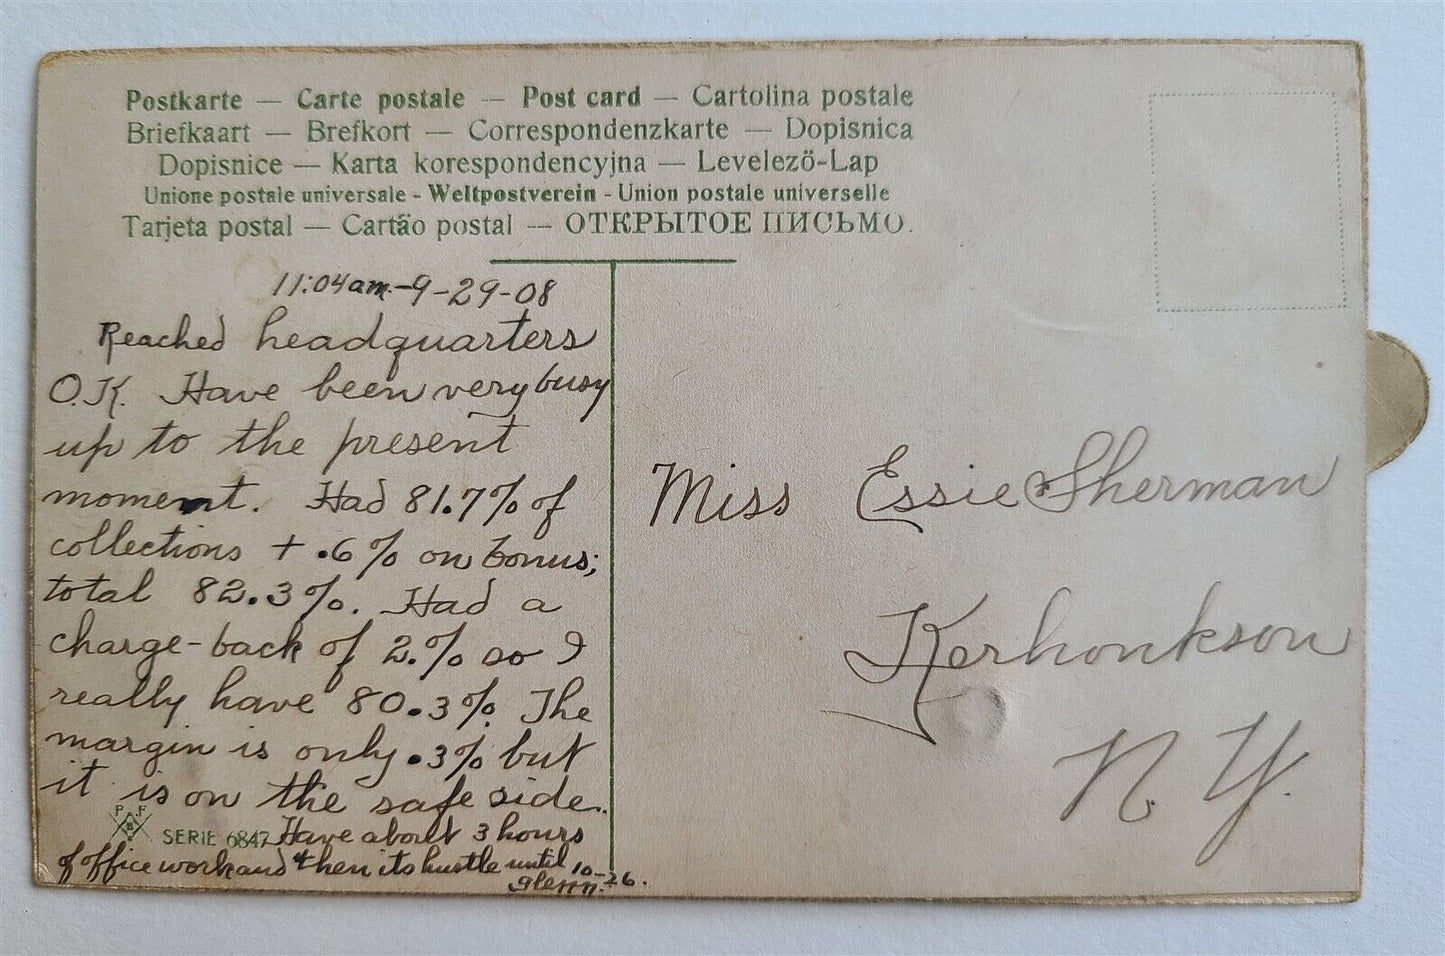 Postkarte — Carte postale — Post card — Cartolina postale
Briefkaart — Brefkort — Correspondenzkarte — Dopisnica
Dopisnice — Karta korespondencyjna — Levelező-Lap
Unione postale universale - Weltpostverein - Union postale universelle
Tarjeta postal — Cartão postal — ОТКРЫТОЕ ПИСЬМО.
11:04 am.-9-29-08
Reached headquarters
O.K. Have been very busy
up to the present
moment. Had 81.7% of
collections + .6% on bonus;
total 82.3%. Had a
charge-back of 2.% so I
really have 80.3%. The
margin is only .3% but
it is on the safe side.
P F B
SERIE 6847 Have about 3 hours
of office work and then its hustle until 10-26.
Glenn.
Miss Essie Sherman
Kerhonkson
N. Y.